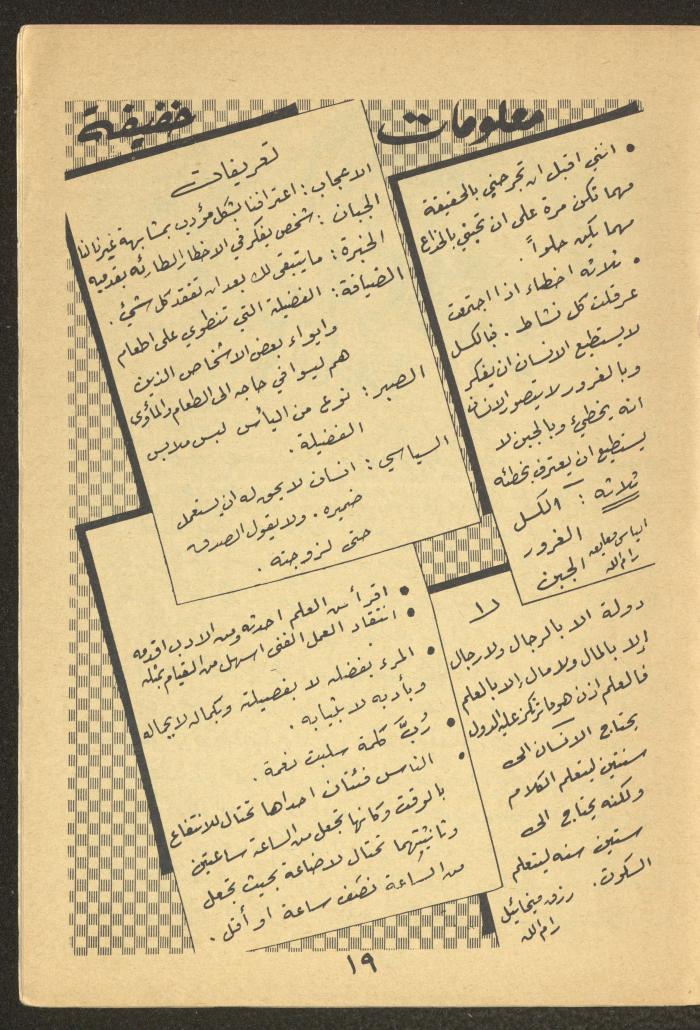 معلومات خفيفة
• انني اقبل ان تجرحني بالحقيقة
مهما تكن مرة على ان تحيي بالخداع
مهما يكن حلواً .
• ثلاثه اخطاء اذا اجتمعت
عرقلت كل نشاط . فالكسل
لا يستطيع الانسان ان يفكر
وبالغرور لا يتصور الانسان
انه يخطيء وبالجبن لا
يستطيع ان يعترف بخطئه
ثلاثه : الكسل
الغرور
الجبن
الياس
رام الله
تعريفات
الاعجاب : اعترافنا بشكل مؤدب بمشابهة غيرنا لنا
الجبان : شخص يفكر في الاخطار الطارئه بقدميه
الخبرة : ما يتبقى لك بعد ان تفقد كل شيء .
الضيافة : الفضيلة التي تنطوي على اطعام
وايواء بعض الاشخاص الذين
هم ليسوا في حاجه الى الطعام والمأوى
الصبر : نوع من اليأس لبس ملابس
الفضيلة .
السياسي : انسان لا يحق له ان يستعمل
ضميره . ولا يقول الصدق
حتى لزوجته .
لا
دولة الا بالرجال ولا رجال
إلا بالمال ولا مال إلا بالعلم
فالعلم اذن هو ما ترتكز عليه الدول
يحتاج الانسان الى
سنتين ليتعلم الكلام
ولكنه يحتاج الى
ستين سنه ليتعلم
السكوت .
رزق ميخائيل
رام الله
• اقرأ من العلم احدثه ومن الادب اقدمه
• انتقاد العمل الفني اسهل من القيام بمثله
• المرء بفضله لا بفصيلته وبكماله لا بجماله
وبأدبه لا بثيابه .
• رُبَّ كلمة سلبت نعمة .
• الناس فئتان احداها تحتال للانتفاع
بالوقت وكانها تجعل من الساعة ساعتين
وثانيتهما تحتال لاضاعة بحيث تجعل
من الساعة نصف ساعة او أقل .
١٩